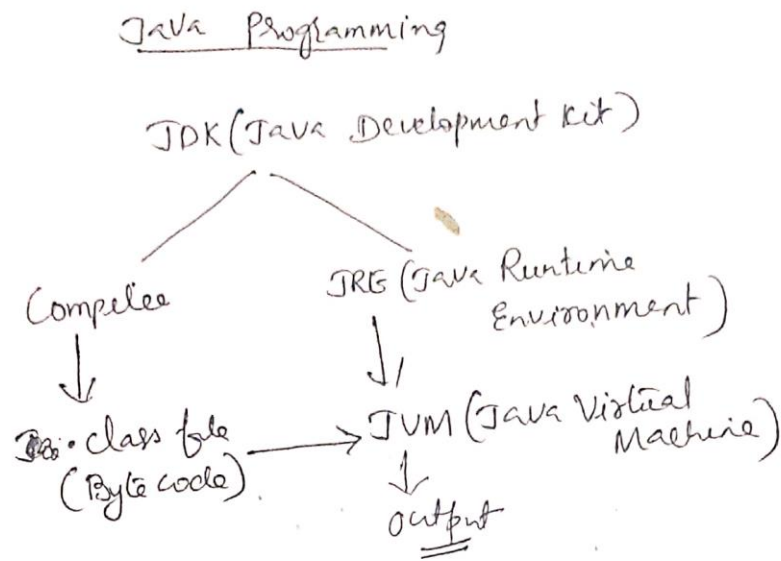 Java Programming
JDK (Java Development Kit)
Compiler
JRE (Java Runtime
Environment)
.class file
(Byte code)
JVM (Java Virtual
Machine)
output